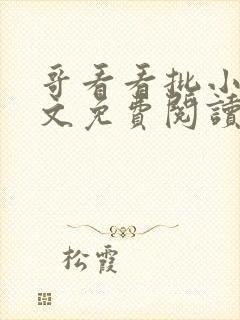 哥看看批小
文免費閱讀
松霞